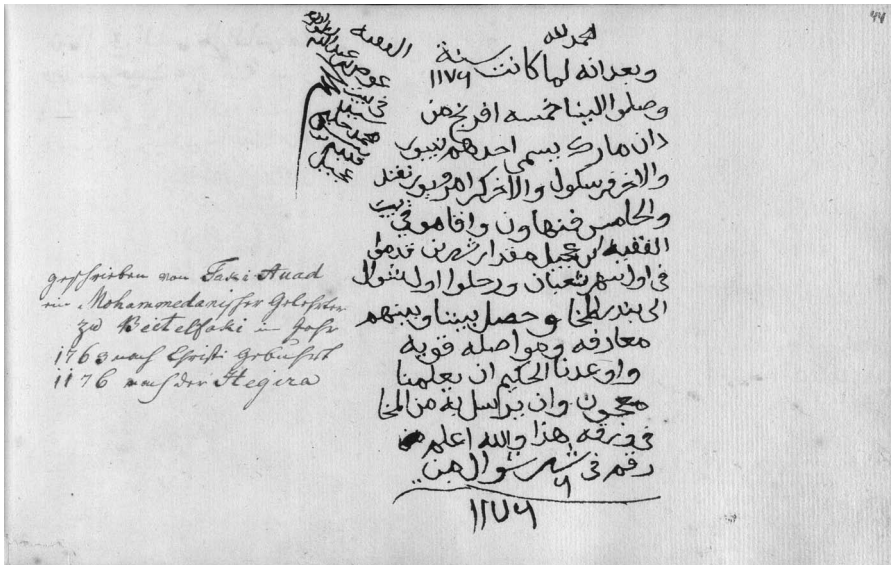 44
الحمد لله
وبعد انه لما كانت سنة ١١٧٦
وصلوا الينا خمسه افرنج من
دان مارك يسمى احدهم نيبور
والاخر فرسكول والاخر كرامر
والخامس فنهاون واقاموا في بيت
الفقيه ابن عجيل مقدار شهرين قدموا
في اول شهر شعبان ورحلوا اول شوال
الى بندر المخا وحصل بيننا وبينهم
معارفه ومواصله قويه
واوعدنا الحكيم ان يعلمنا
معجون وان يرسل به من المخا
في ورقه هذا والله اعلم
رقم في ٦ شهر شوال من
١١٧٦
الفقيه
geschrieben von Faki Auad
ein Mohammedanischer Gelehrter
zu Beit el faki im Jahr
1763 nach Christi Gebuhrt
1176 nach der Hegira